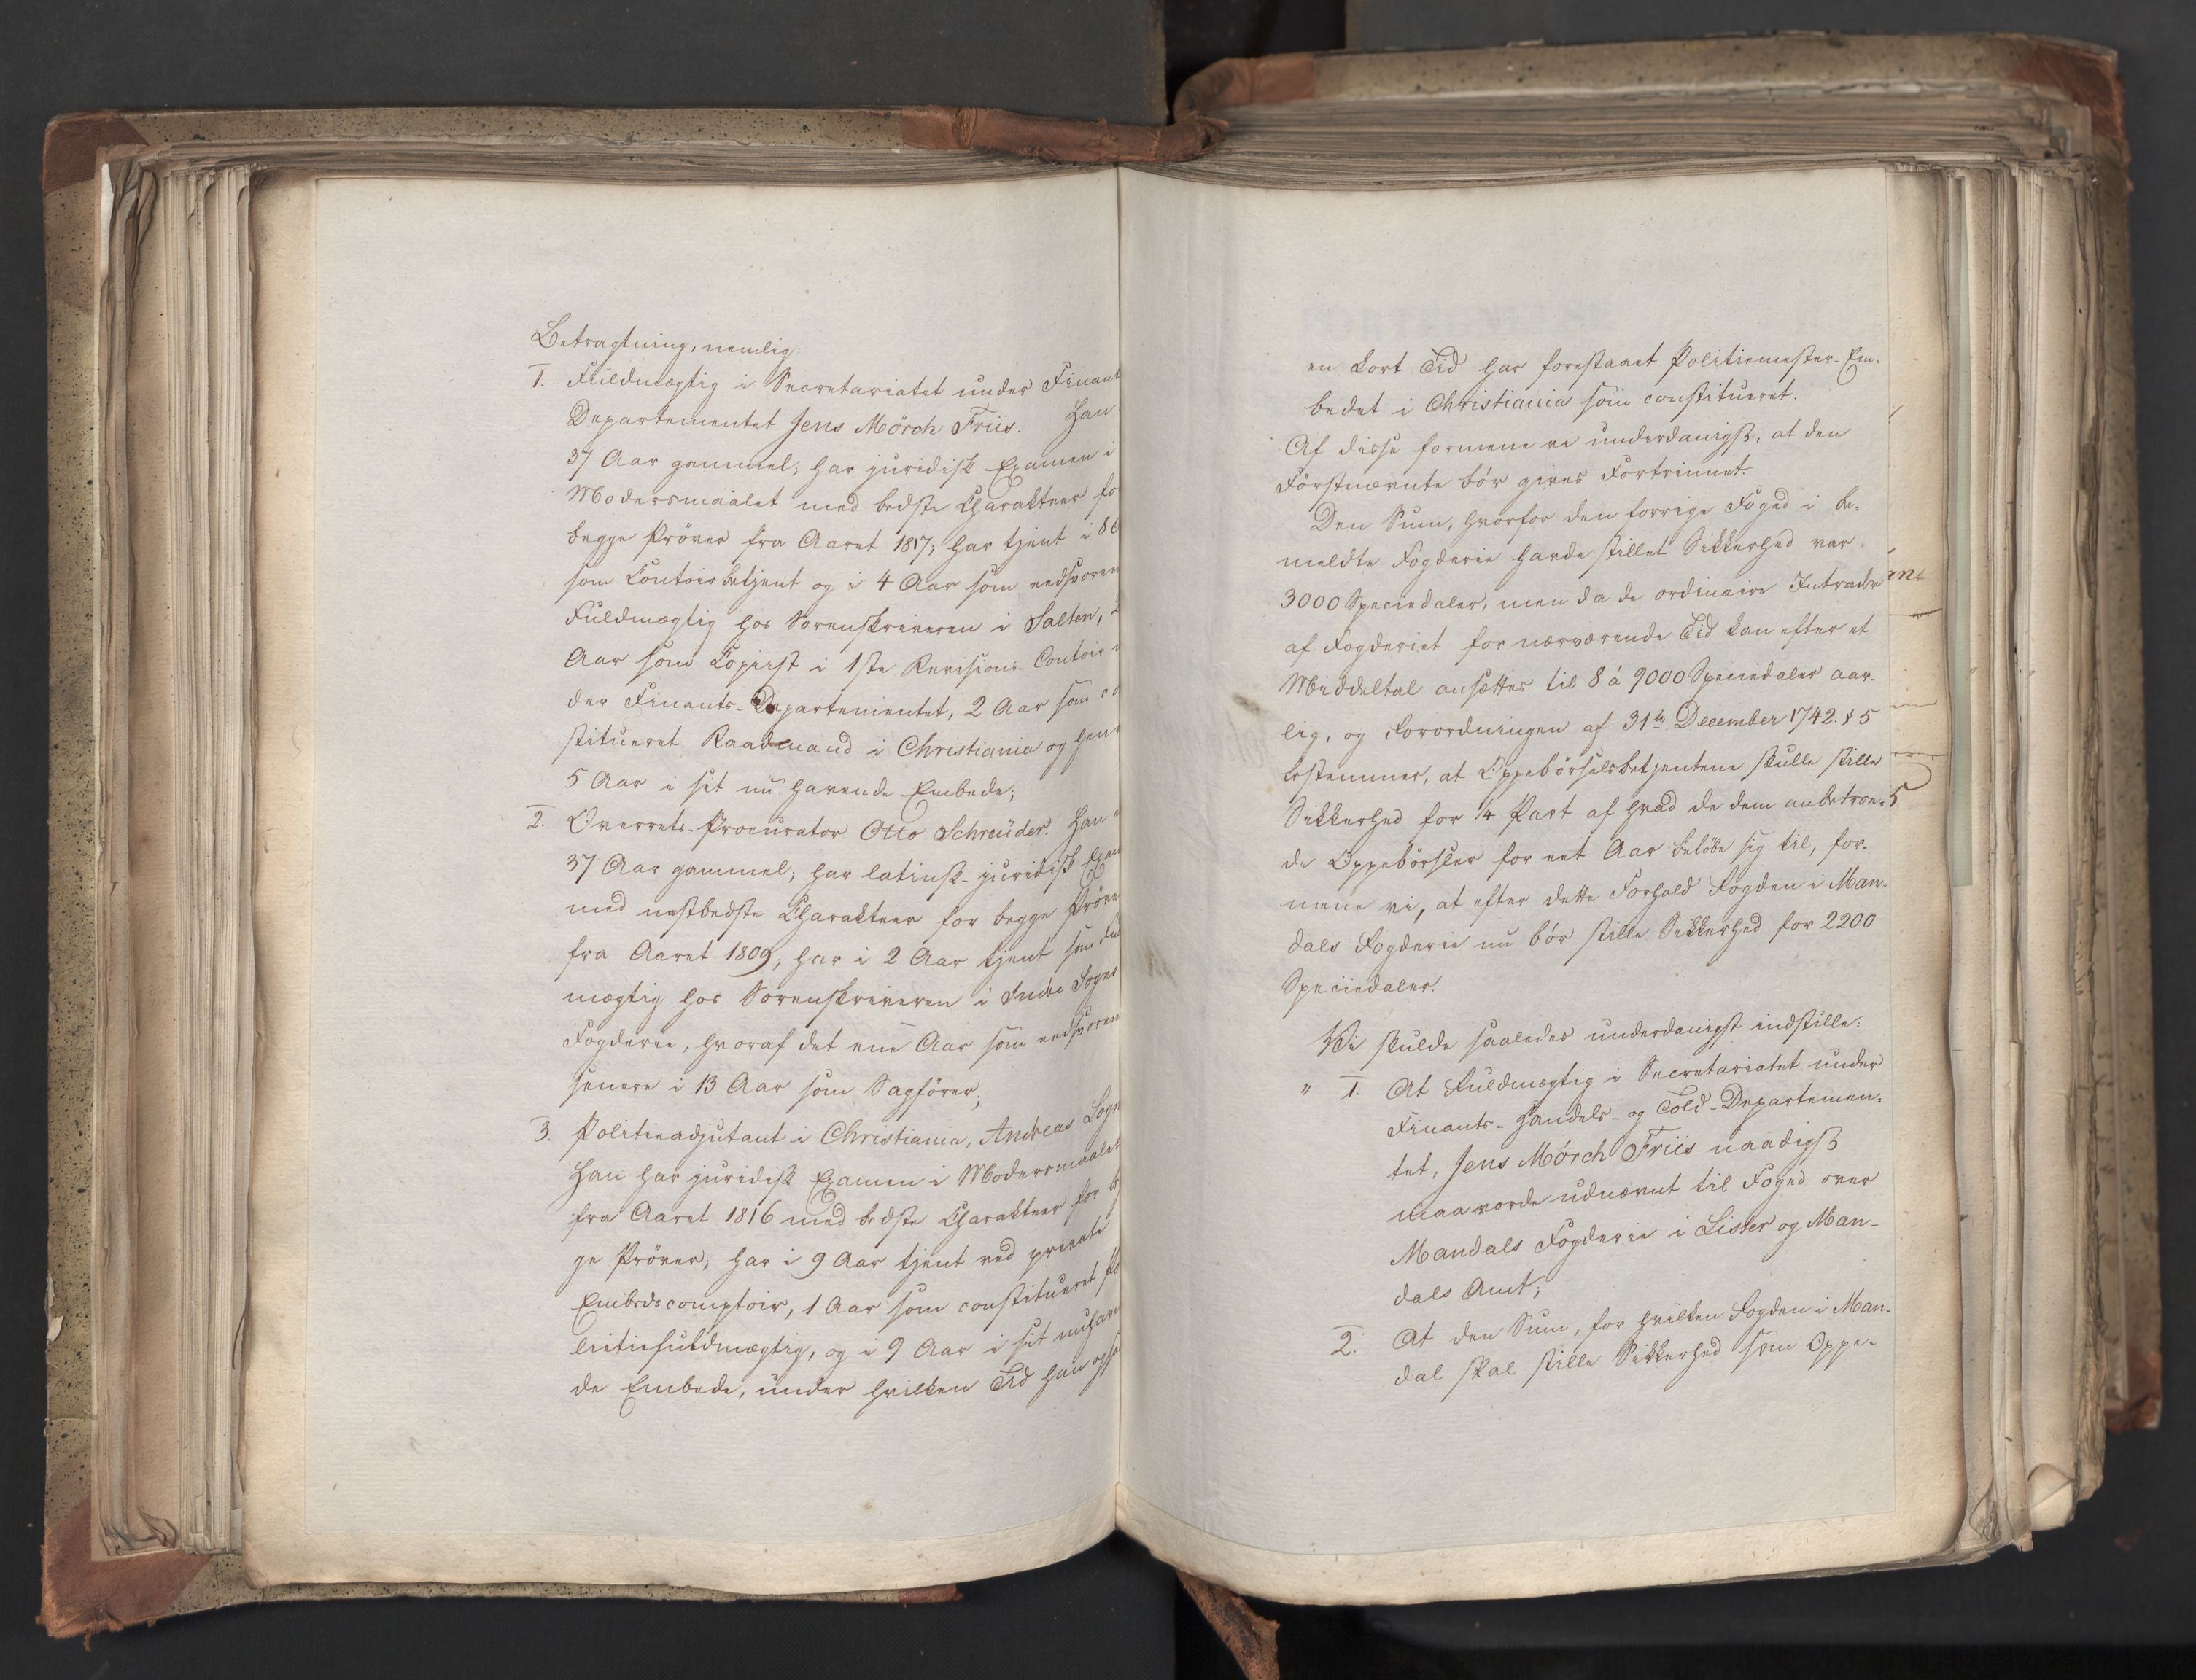 Betragtning, nemlig:
1. Fuldmægtig i Secretariatet under Finant
Departementet Jens Mörch Friis. Han
37 Aar gammel; har juridisk Examen i
Modersmaalet med bedste Charakteer fo
begge Pröver fra Aaret 1817; har tjent i 8
som Contoirbetjent og i 4 Aar som eedsvoren
Fuldmægtig hos Sorenskriveren i Salten,
Aar som Copiist i 1ste Revisions-Contoir
der Finants-Departementet, 2 Aar som co
stitueret Raadmand i Christiania og hen
5 Aar i sit nu havende Embede;
2. Overrets-Procurator Otto Schreüder. Han
37 Aar gammel; har latinsk-juridisk Exam
med nestbedste Charakteer for begge Pröve
fra Aaret 1809; har i 2 Aar tjent som Ful
mægtig hos Sorenskriveren i Indre Sogns
Fogderie, hvoraf det ene Aar som eedsvoren
senere i 13 Aar som Sagförer;
3. Politieadjutant i Christiania, Andreas Logn
Han har juridisk Examen i Modersmaalet
fra Aaret 1816 med bedste Charakteer for be
ge Pröver; har i 9 Aar tjent ved private
Embedscomptoir, 1 Aar som constitueret Po
litiefuldmægtig, og i 9 Aar i sit nuhaven
de Embede, under hvilken Tid han og
en kort Tid har forestaaet Politiemester-Em-
bedet i Christiania som constitueret.
Af disse formene vi underdanigst, at den
Förstnævnte bör gives Fortrinnet.
Den Sum, hvorfor den forrige Foged i be-
meldte Fogderie havde stillet Sikkerhed var
3000 Speciedaler, men da de ordinaire Intrader
af Fogderiet for nærværende Tid kan efter et
Middeltal ansættes til 8 á 9000 Speciedaler aar-
lig, og Forordningen af 31te December 1742. § 5
bestemmer, at Oppebörselsbetjentene skulle stille
Sikkerhed for 1/4 Part af hvad de dem anbetroe-
de Oppebörsler for eet Aar belöbe sig til, for-
mene vi, at efter dette Forhold Fogden i Man-
dals Fogderie nu bör stille Sikkerhed for 2200
Speciedaler.
Vi skulde saaledes underdanigst indstille:
" 1. At Fuldmægtig i Secretariatet under
Finants-Handels-og Told-Departemen-
tet, Jens Mörch Friis naadigst
maa vorde udnævnt til Foged over
Mandals Fogderie i Lister og Man-
dals Amt;
2. At den Sum, for hvilken Fogden i Man-
dal skal stille Sikkerhed som Oppe-